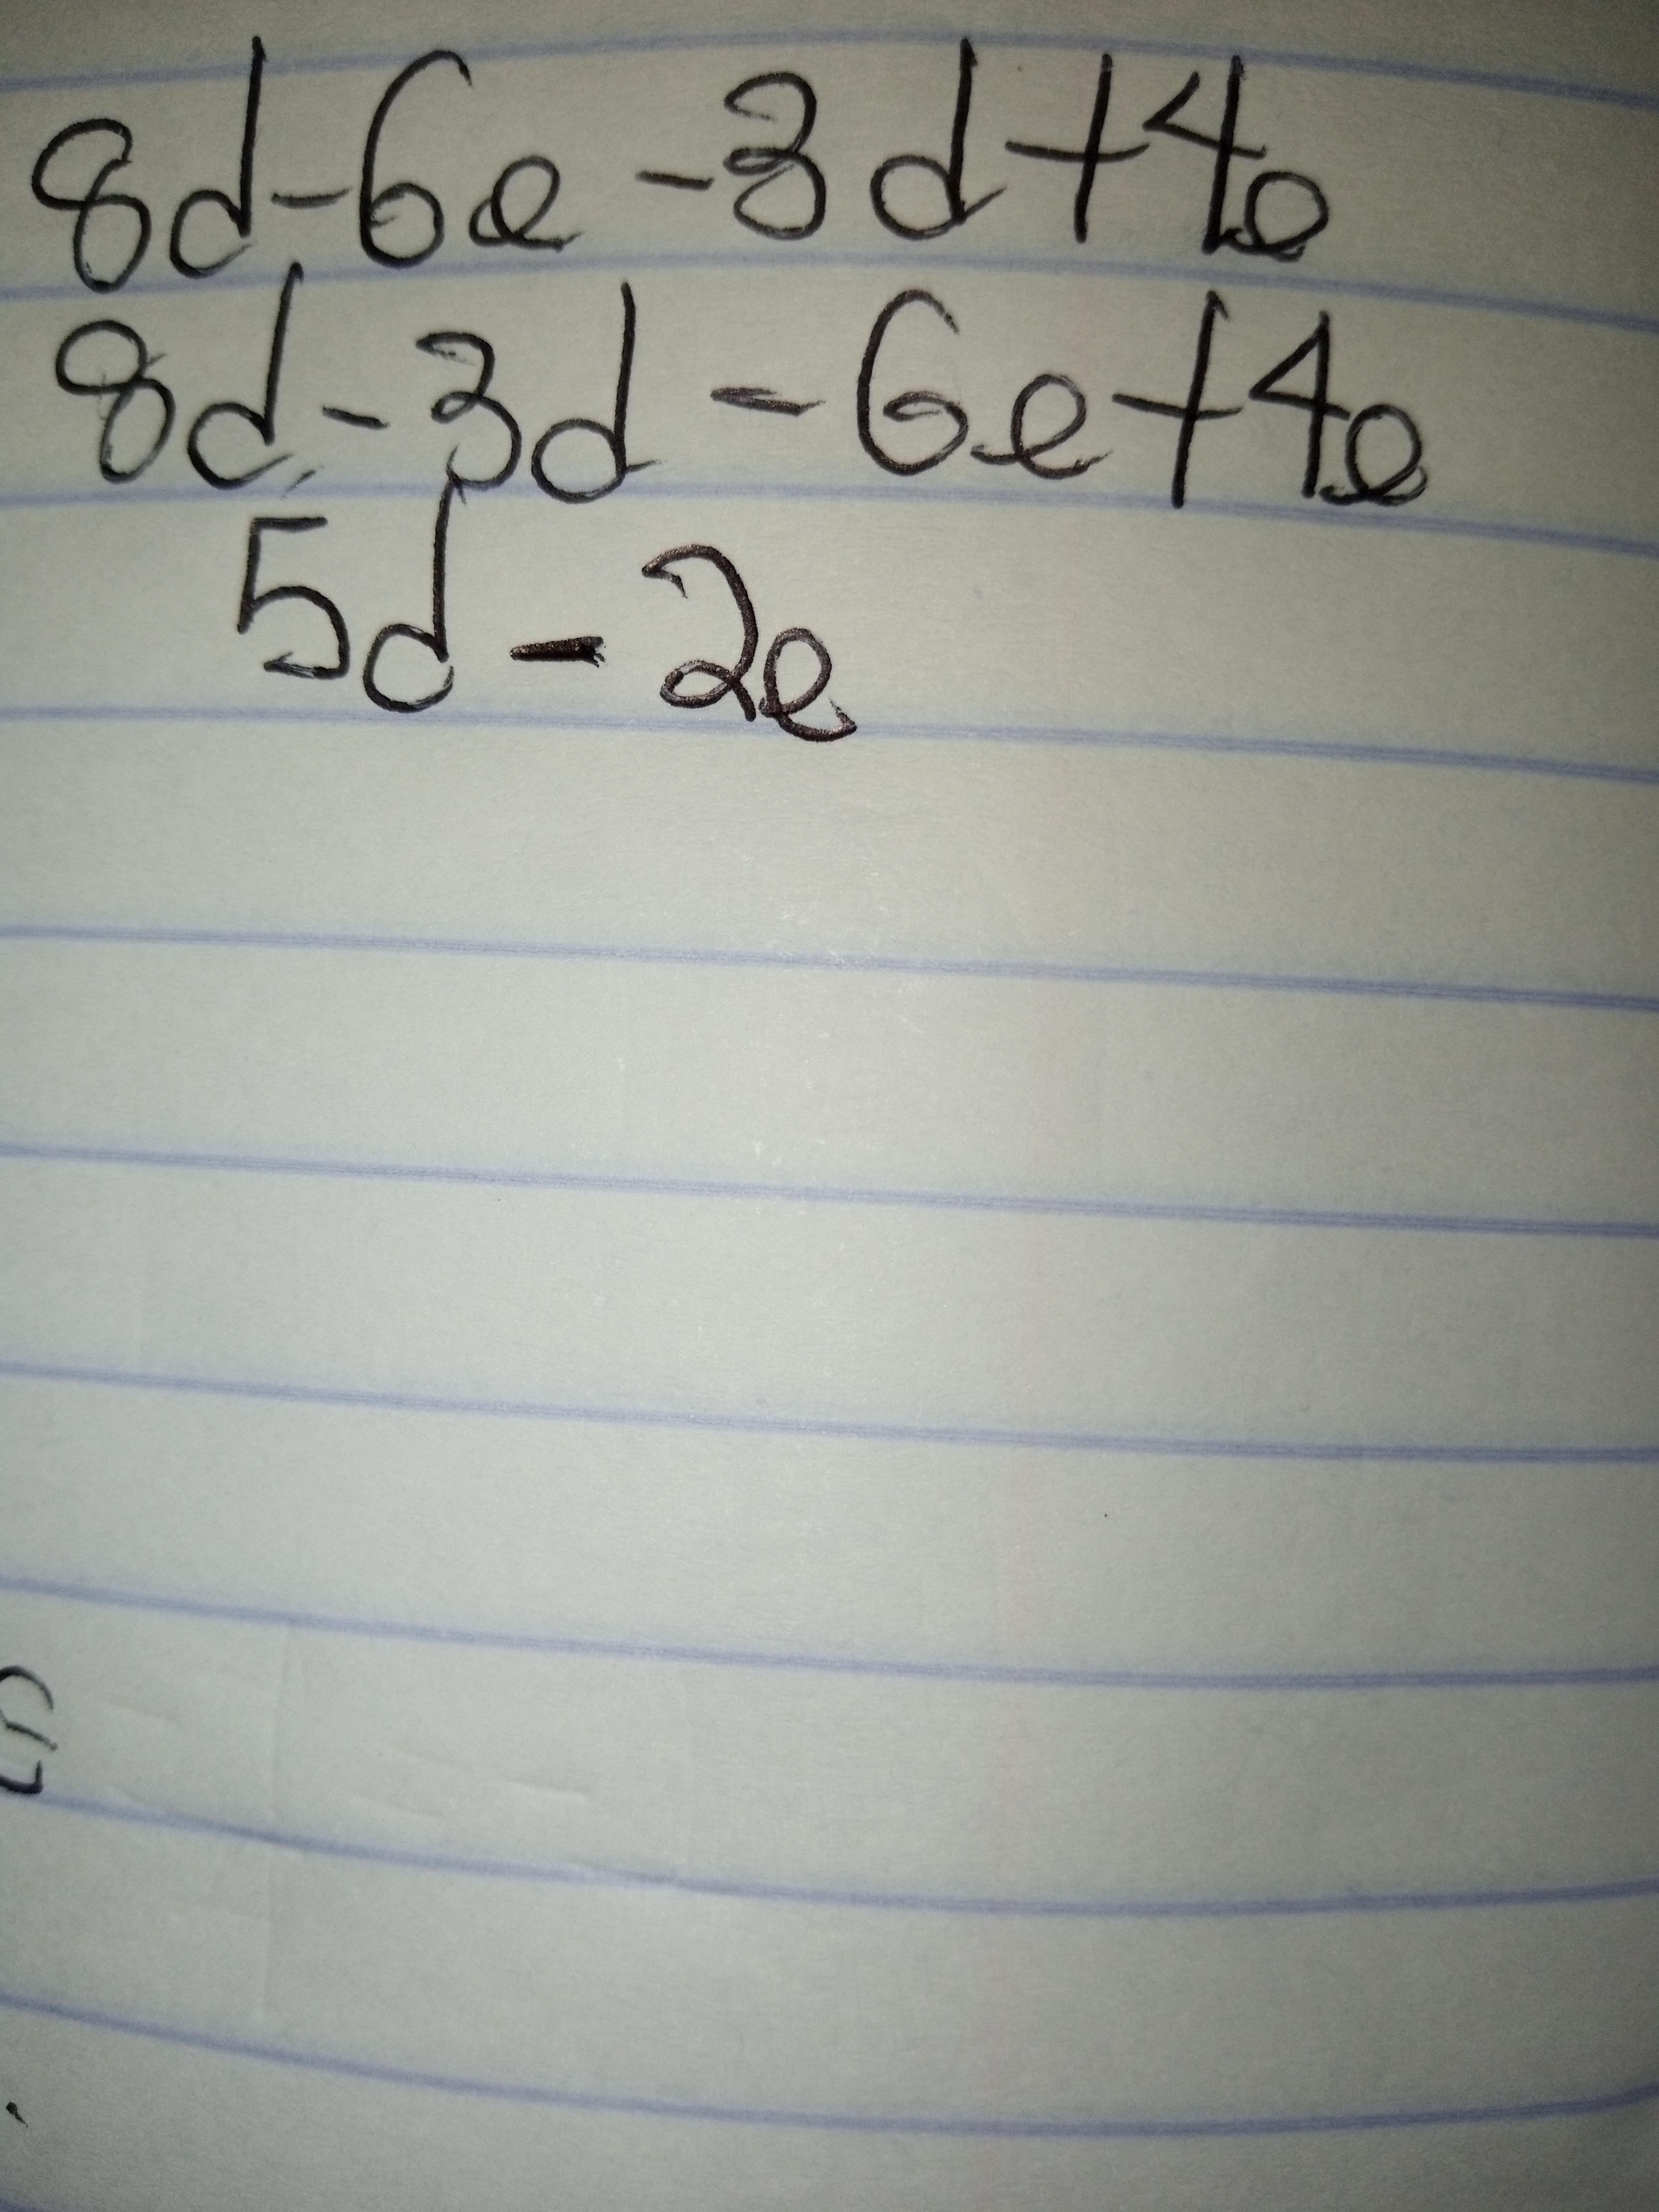 8d-6e-3d+4e
8d-3d-6e+4e
5d-2e